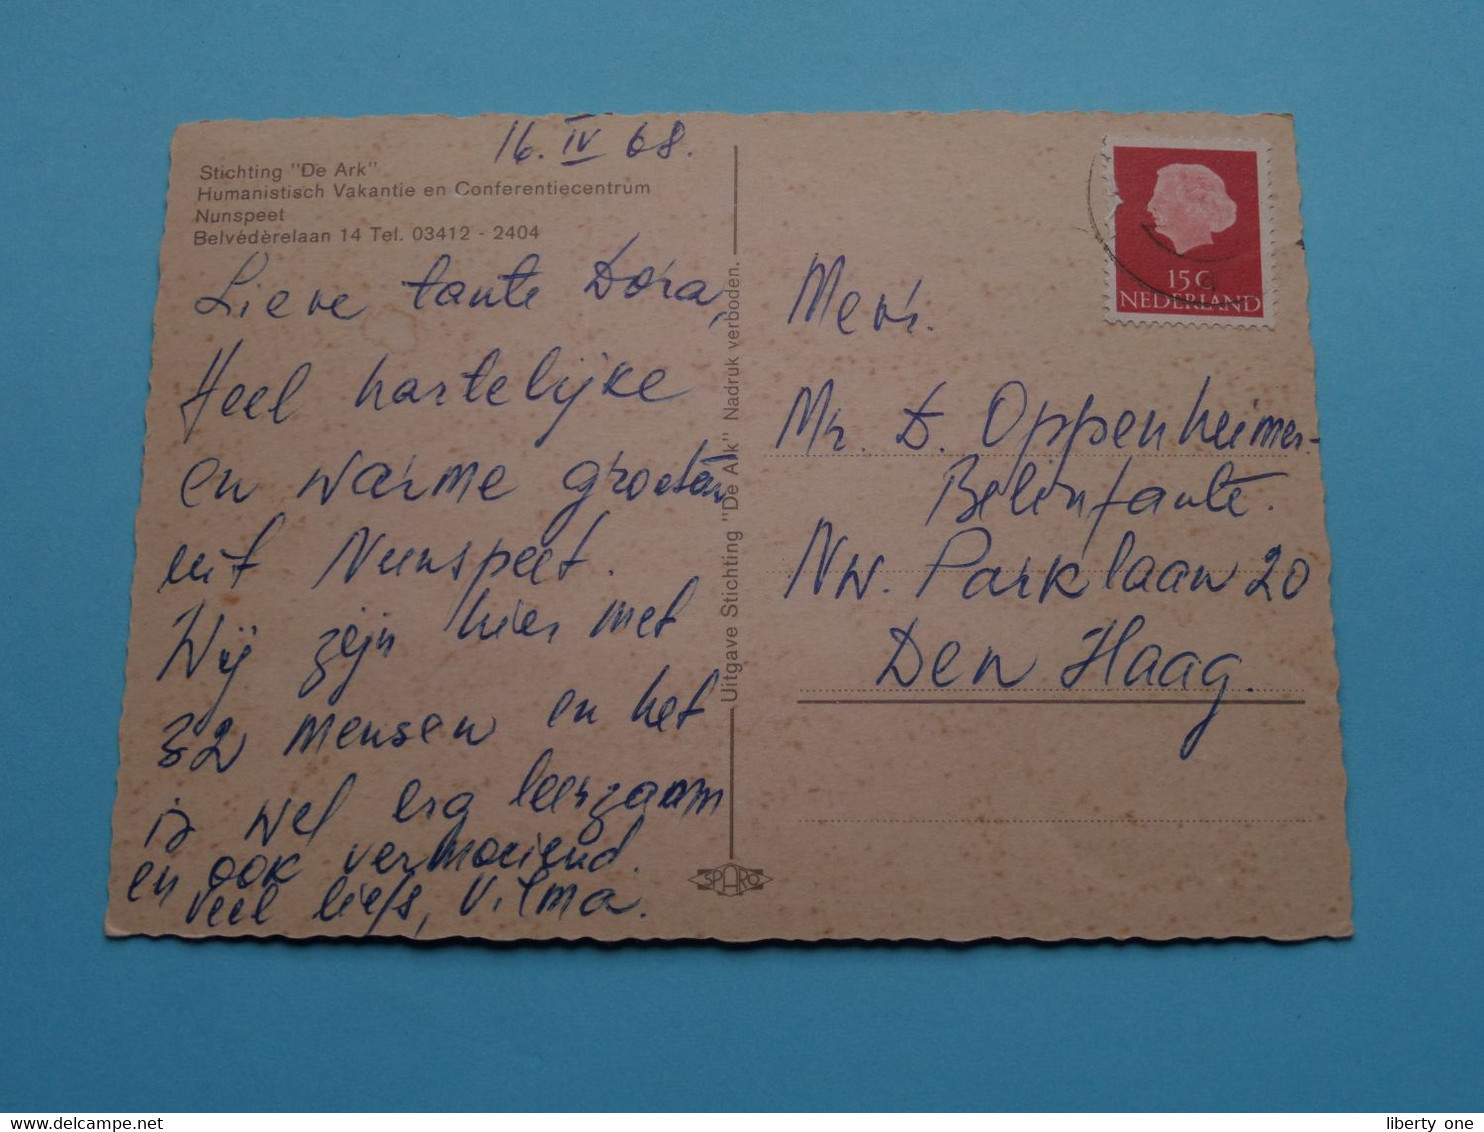 16. IV 68.
Stichting "De Ark"
Humanistisch Vakantie en Conferentiecentrum
Nunspeet
Belvédèrelaan 14 Tel. 03412 - 2404
Lieve tante Dora,
Heel hartelijke
en warme groeten
uit Nunspeet.
Wij zijn hier met
32 mensen en het
is wel erg leerzaam
en ook vermoeiend.
Veel liefs, Vilma.
Uitgave Stichting "De Ark" Nadruk verboden.
SPARO
15 C
NEDERLAND
Mevr.
Mr. D. Oppenheimer-
Belinfante.
Nw. Parklaan 20
Den Haag.
liberty one